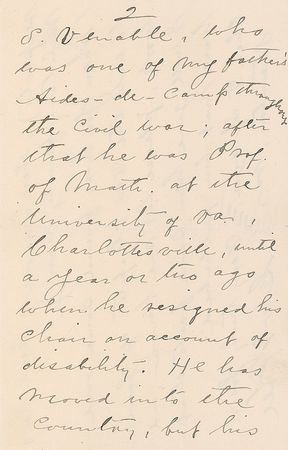 2
S. Venable, who
was one of my father's
Aides-de-Camp throughout
the Civil war; after
that he was Prof.
of Math. at the
University of Va.,
Charlottesville, until
a year or two ago
when he resigned his
chair on account of
disability. He has
moved into the
country, but his